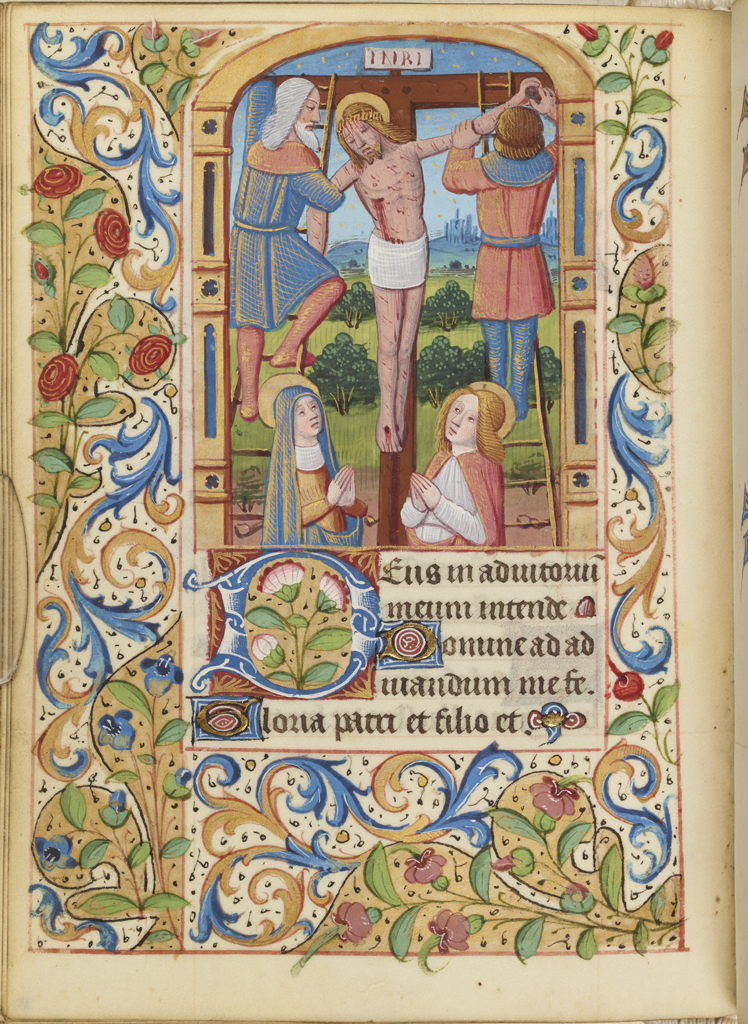 INRI
Deus in adiutoriu̅
meum intende
Domine ad ad
iuuandum me fe.
Gloria patri et filio et.